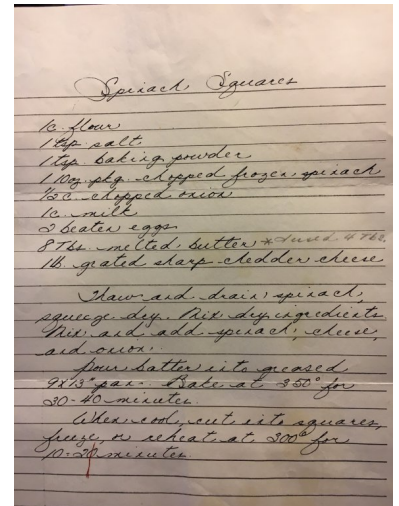 Spinach Squares
1c. flour
1 tsp. salt
1 tsp. baking powder
1 10oz. pkg. chopped frozen spinach
1/2 c. chopped onion
1c. milk
2 beaten eggs
8 Tbs. melted butter *I used 4 Tbs.
1 lb. grated sharp chedder cheese
Thaw and drain spinach,
squeeze dry. Mix dry ingredients
Mix and add spinach, cheese,
and onion.
Pour batter into greased
9x13" pan. Bake at 350° for
30-40 minutes.
When cool, cut into squares,
freeze, or reheat at 300° for
10-20 minutes.